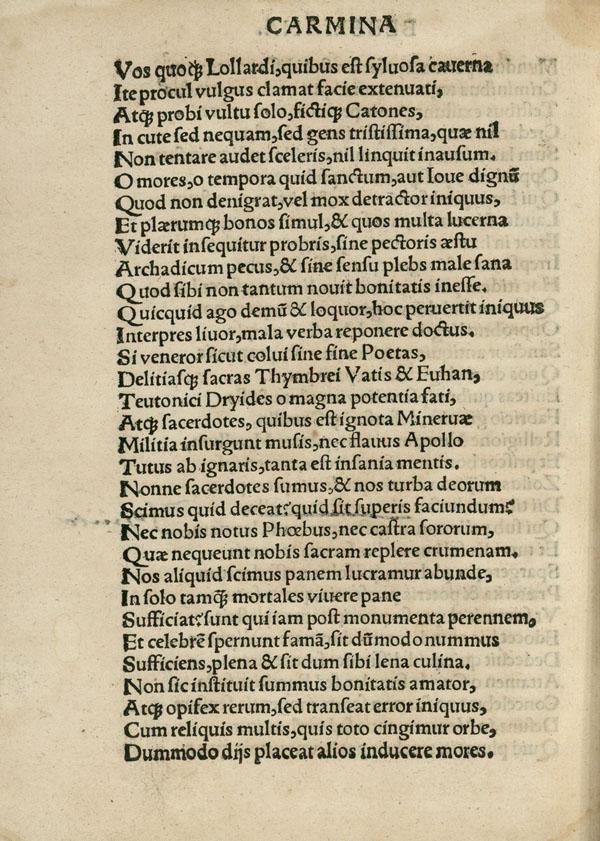 CARMINA
Vos quoqꝫ Lollardi,quibus est syluosa cauerna
Ite procul vulgus clamat facie extenuati,
Atqꝫ probi vultu solo,fictiqꝫ Catones,
In cute sed nequam,sed gens tristissima,quæ nil
Non tentare audet sceleris,nil linquit inausum.
O mores,o tempora quid sanctum,aut Ioue dignũ
Quod non denigrat,vel mox detractor iniquus,
Et plærumqꝫ bonos simul,& quos multa lucerna
Viderit insequitur probris,sine pectoris æstu
Archadicum pecus,& sine sensu plebs male sana
Quod sibi non tantum nouit bonitatis inesse.
Quicquid ago demũ & loquor,hoc peruertit iniquus
Interpres liuor,mala verba reponere doctus.
Si veneror sicut colui sine fine Poetas,
Delitiasqꝫ sacras Thymbrei Vatis & Euhan,
Teutonici Dryides o magna potentia fati,
Atqꝫ sacerdotes, quibus est ignota Mineruæ
Militia insurgunt musis,nec flauus Apollo
Tutus ab ignaris,tanta est insania mentis.
Nonne sacerdotes sumus,& nos turba deorum
Scimus quid deceat?quid sit superis faciundum?
Nec nobis notus Phœbus,nec castra sororum,
Quæ nequeunt nobis sacram replere crumenam.
Nos aliquid scimus panem lucramur abunde,
In solo tamqꝫ mortales viuere pane
Sufficiat?sunt qui iam post monumenta perennem,
Et celebrẽ spernunt famã,sit dũmodo nummus
Sufficiens,plena & sit dum sibi lena culina.
Non sic instituit summus bonitatis amator,
Atqꝫ opifex rerum,sed transeat error iniquus,
Cum reliquis multis,quis toto cingimur orbe,
Dummodo dijs placeat alios inducere mores.